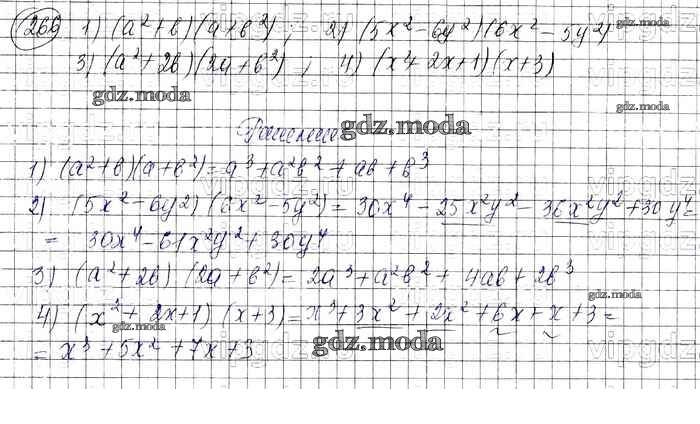 266 1) (a²+b)(a+b²) ; 2) (5x²-6y²)(6x²-5y²)
3) (a²+2b)(2a+b²) ; 4) (x²+2x+1)(x+3)
gdz.moda
gdz.moda
Решение
gdz.moda
1) (a²+b)(a+b²)=a³+a²b²+ab+b³
2) (5x²-6y²)(6x²-5y²)=30x⁴-25x²y²-36x²y²+30y⁴=
= 30x⁴-61x²y²+30y⁴
3) (a²+2b)(2a+b²)=2a³+a²b²+4ab+2b³
gdz.moda
4) (x²+2x+1)(x+3)=x³+3x²+2x²+6x+x+3=
gdz.moda
= x³+5x²+7x+3
gdz.moda
vipgdz